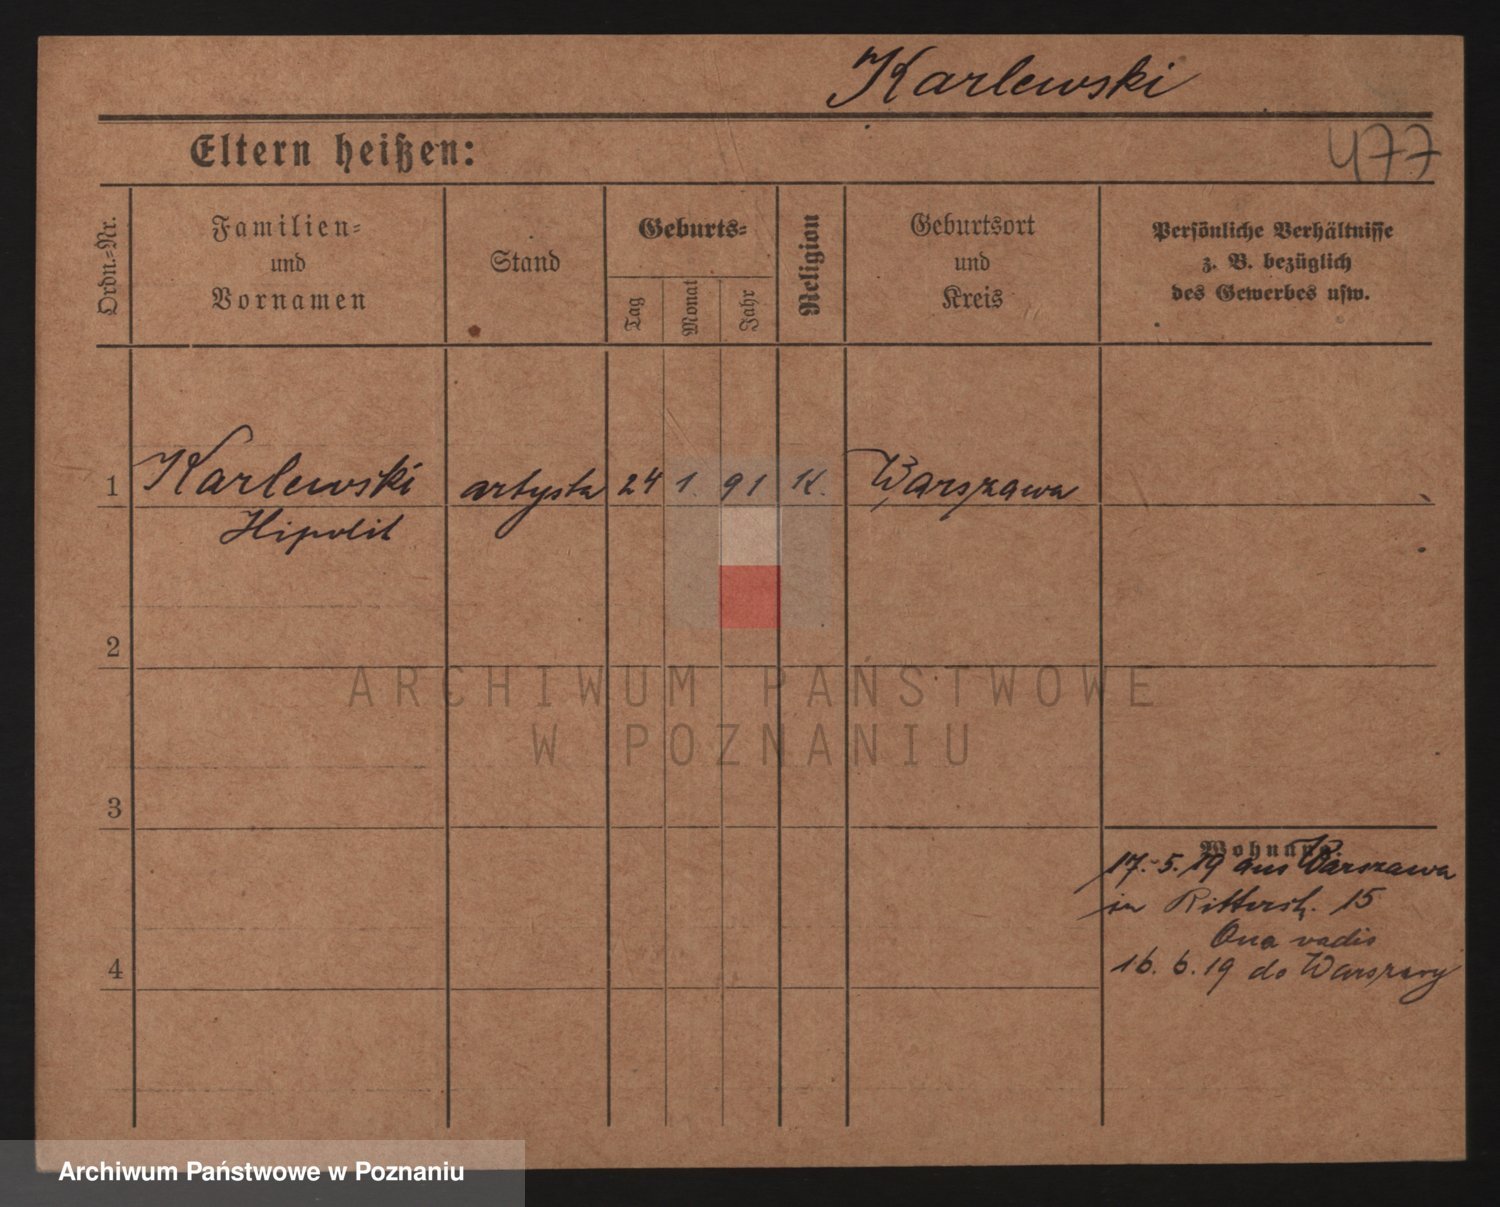 Karlewski
Eltern heißen:
477
Ordn.=Nr.
Familien=
und
Vornamen
Stand
Geburts=
Tag
Monat
Jahr
Religion
Geburtsort
und
Kreis
Persönliche Verhältnisse
z. B. bezüglich
des Gewerbes usw.
1 Karlewski artysta 24 1. 91 K. Warszawa
Hipolit
2
3
4
Wohnung
17.5.19 aus Warszawa
in Ritterstr. 15
Quo vadis
16.6.19 do Warszawy
ARCHIWUM PAŃSTWOWE
W POZNANIU
Archiwum Państwowe w Poznaniu